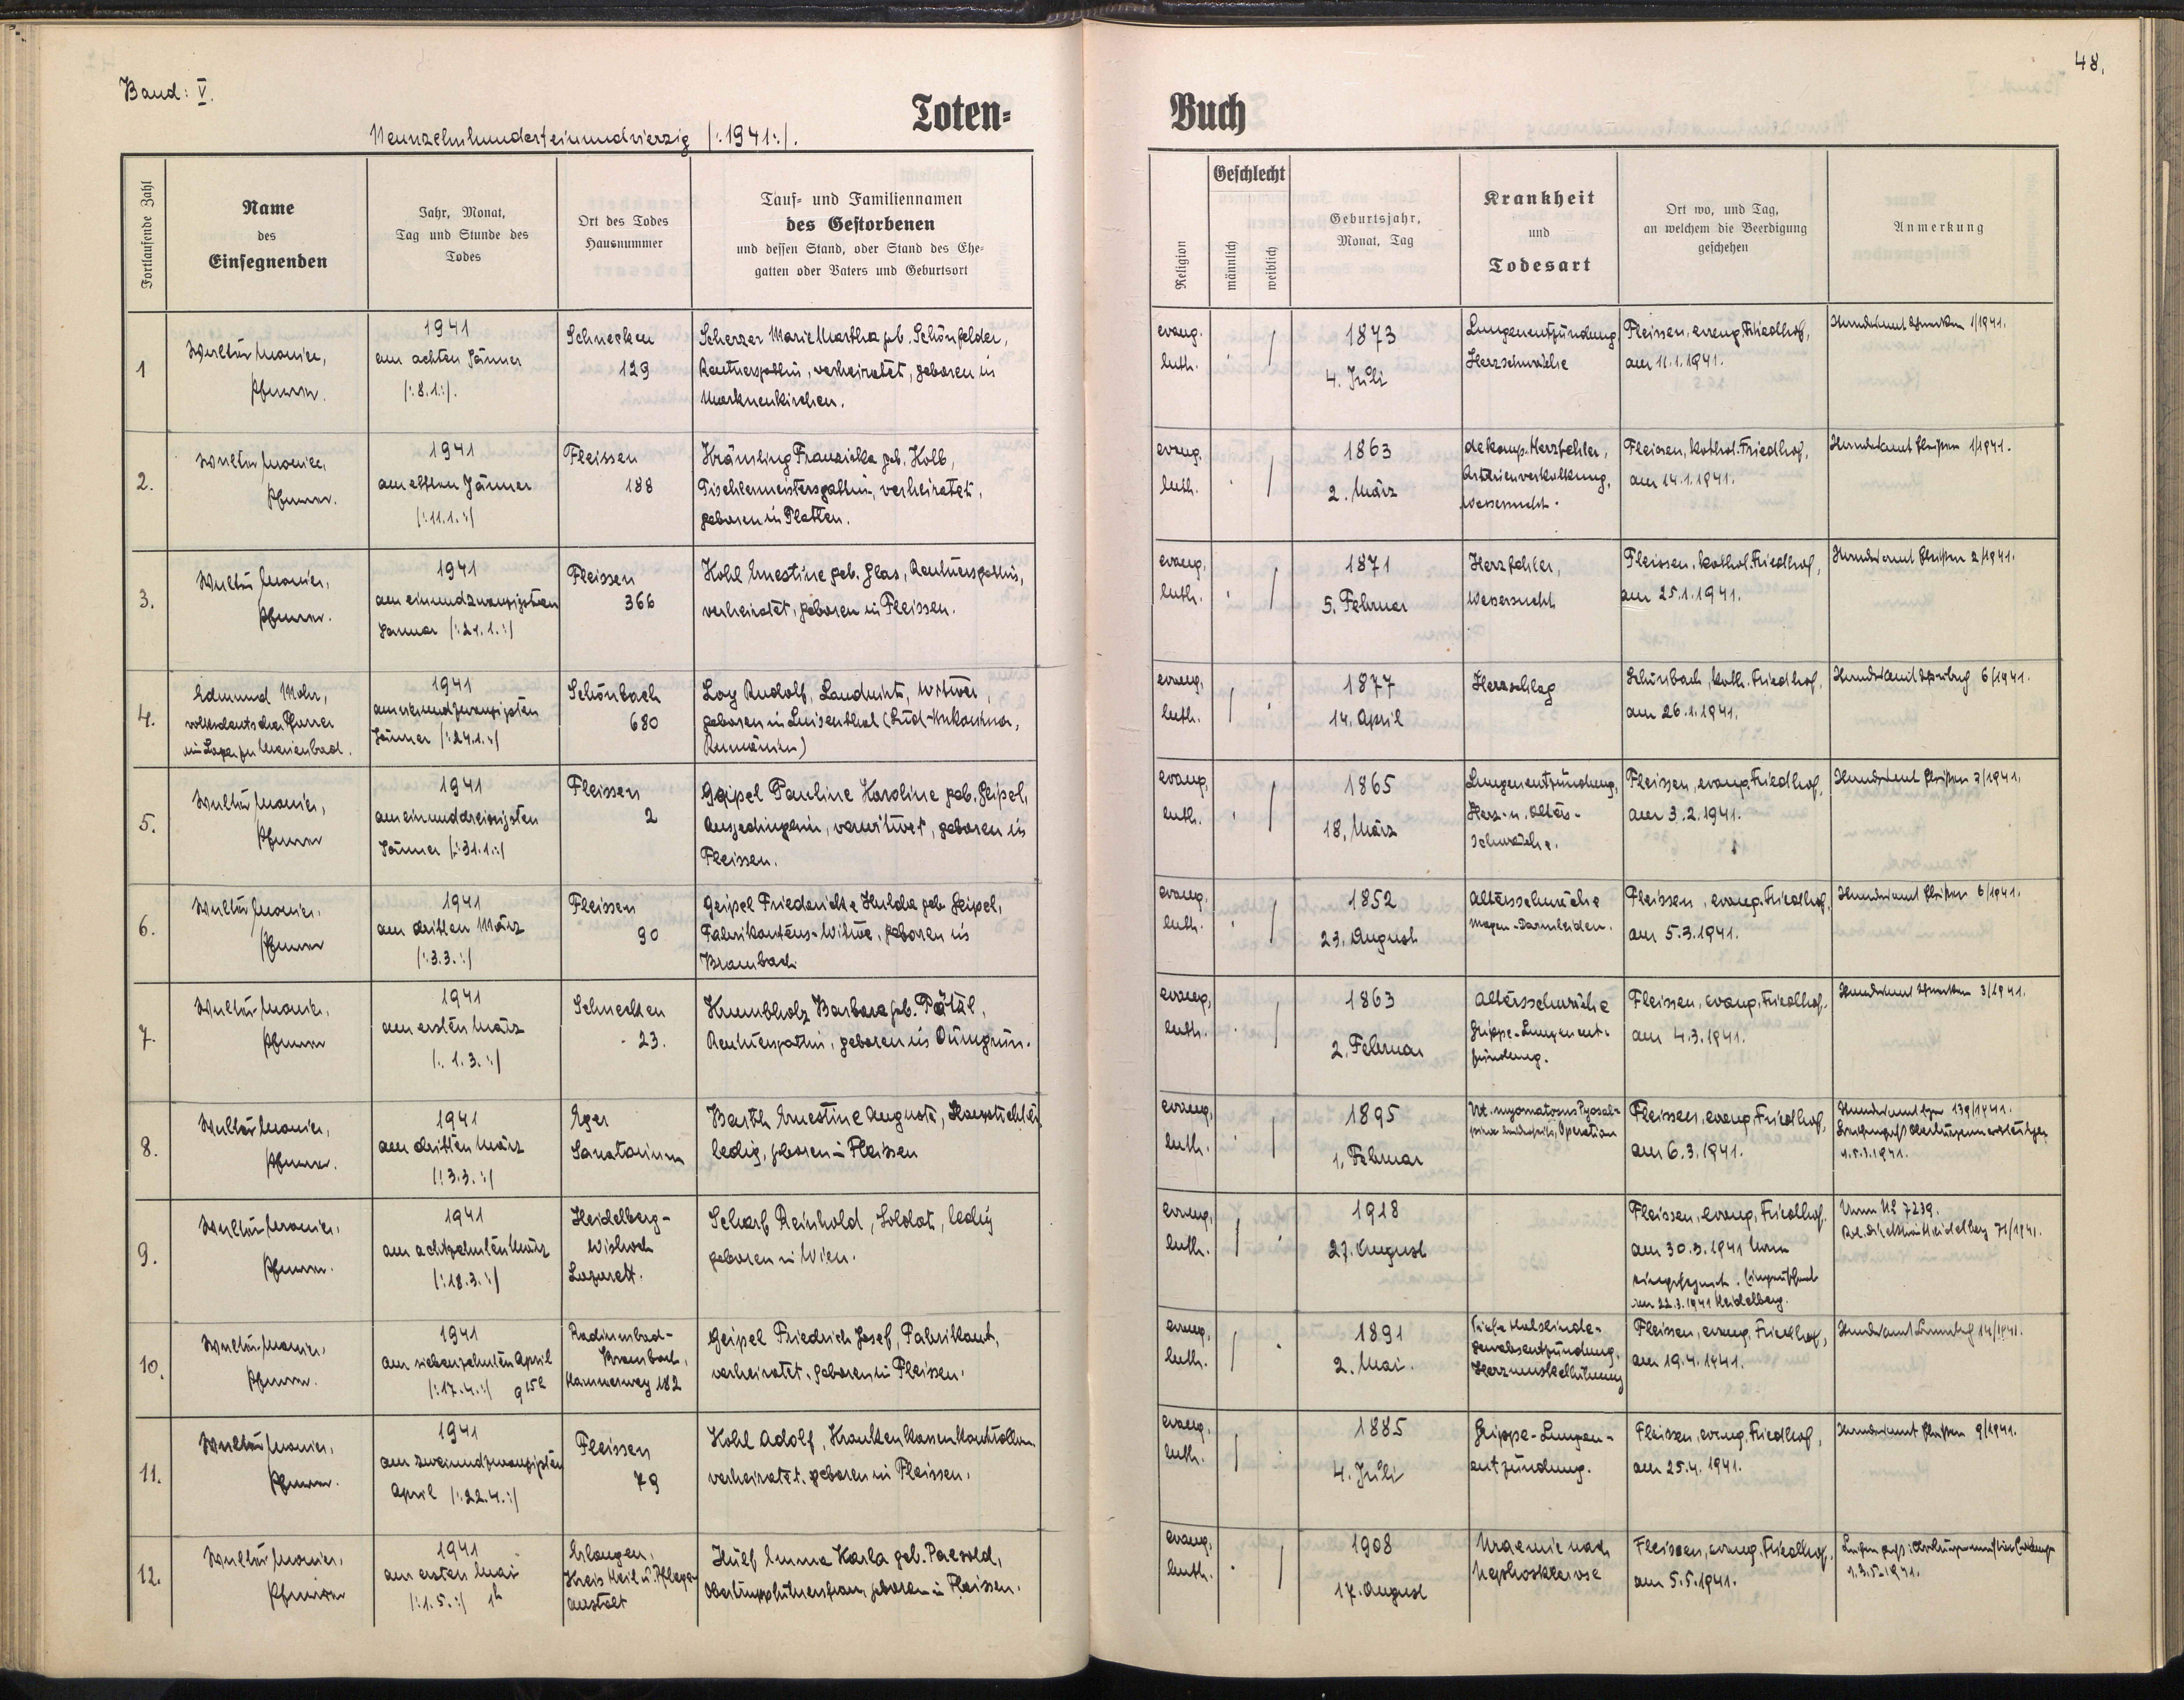 48.
Band: V.
Toten-
Buch
Neunzehnhunderteinundvierzig /:1941:/.
Fortlaufende Zahl
Name
des
Einsegnenden
Jahr, Monat,
Tag und Stunde des
Todes
Ort des Todes
Hausnummer
Tauf- und Familiennamen
des Gestorbenen
und dessen Stand, oder Stand des Ehe-
gatten oder Vaters und Geburtsort
Religion
Geschlecht
männlich
weiblich
Geburtsjahr,
Monat, Tag
Krankheit
und
Todesart
Ort wo, und Tag,
an welchem die Beerdigung
geschehen
Anmerkung
1
Pfarrer.
1941
am achten Jänner
/:8.1:/.
Schnecken
129
Scherzer Marie Martha geb. Schönfelder,
Rentnersgattin, verheiratet, geboren in
Markneukirchen.
evang.
luth.
1873
4. Juli
Lungenentzündung
Herzschwäche
Fleissen, evang. Friedhof,
am 11.1.1941.
1/1941.
2.
Pfarrer.
1941
am elften Jänner
/:11.1.:/
Fleissen
188
Krämling Franziska geb. Kolb,
Tischlermeistersgattin, verheiratet,
geboren in Platten.
evang.
luth.
1863
2. März
dekomp. Herzfehler,
Arterienverkalkung,
Wassersucht.
Fleissen, kathol. Friedhof,
am 14.1.1941.
1/1941.
3.
Pfarrer.
1941
am einundzwanzigsten
Januar /:21.1.:/
Fleissen
366
Kohl Ernestine geb. Glas, Rentnersgattin,
verheiratet, geboren in Fleissen.
evang.
luth.
1871
5. Februar
Herzfehler,
Wassersucht
Fleissen, kathol. Friedhof,
am 25.1.1941.
2/1941.
4.
Edmund Mohr,
volksdeutscher Pfarrer
im Lager zu Marienbad.
1941
Jänner /:24.1.:/
Schönbach
680
Loy Rudolf, Landwirt, Witwer,
geboren in Luisenthal (Süd-Bukowina,
Rumänien)
evang.
luth.
1877
14. April
Herzschlag
Schönbach, kath. Friedhof,
am 26.1.1941.
6/1941.
5.
Pfarrer
1941
am einunddreissigsten
Jänner /:31.1.:/
Fleissen
2
Geipel Pauline Karoline geb. Geipel,
Ausgedingerin, verwitwet, geboren in
Fleissen.
evang.
luth.
1865
18. März
Lungenentzündung,
Herz- u. Alters-
schwäche.
Fleissen, evang. Friedhof,
am 3.2.1941.
3/1941.
6.
Pfarrer
1941
am dritten März
/:3.3.:/
Fleissen
90
Geipel Friedericke Hulda geb Geipel,
Fabrikantens-Witwe, geboren in
Brambach
evang.
luth.
1852
23. August
Altersschwäche
Magen-Darmleiden.
Fleissen, evang. Friedhof,
am 5.3.1941.
6/1941.
7.
Pfarrer
1941
am ersten März
/: 1.3.:/
Schnecken
23.
Krumbholz Barbara geb.
Rentnersgattin, geboren in Dürngrün.
evang.
luth.
1863
2. Februar
Altersschwäche
Grippe-Lungenent-
zündung.
Fleissen, evang. Friedhof.
am 4.3.1941.
3/1941.
8.
Pfarrer.
1941
am dritten März
/:3.3.:/
Eger
Sanatorium
Barth Ernestine Auguste,
ledig, geboren in Fleissen
evang.
luth.
1895
1. Februar
Operation
Fleissen, evang. Friedhof,
am 6.3.1941.
139/1941.
9.
Pfarrer.
1941
am achtzehnten März
/:18.3.:/
Heidelberg-
Wisloch
Lazarett.
Scharf Reinhold, Soldat, ledig
geboren in Wien.
evang.
luth.
1918
27. August
Fleissen, evang. Friedhof.
am 30.3.1941
am 22.3.1941 Heidelberg.
7239.
71/1941.
10.
Pfarrer.
1941
am siebenzehnten April
/:17.4.:/ 9 15
Radiumbad-
Brambach,
Hammerweg 182
Geipel Friedrich Josef, Fabrikant,
verheiratet, geboren in Fleissen.
evang.
luth.
1891
2. Mai.
Herzmuskellähmung
Fleissen, evang. Friedhof,
am 19.4.1941.
14/1941.
11.
Pfarrer.
1941
am zweiundzwanzigsten
April /:22.4.:/
Fleissen
79
Kohl Adolf,
verheiratet, geboren in Fleissen.
evang.
luth.
1885
4. Juli
Grippe-Lungen-
entzündung.
Fleissen, evang. Friedhof,
am 25.4.1941.
9/1941.
12.
1941
am ersten Mai
/:1.5.:/ 1h
Erlangen,
Kreis Heil u. Pflege-
anstalt
Emma Karla geb. Paesold,
geboren in Fleissen.
evang.
luth.
1908
17. August
Uraemie nach
Nephrosklerose
Fleissen, evang. Friedhof.
am 5.5.1941.